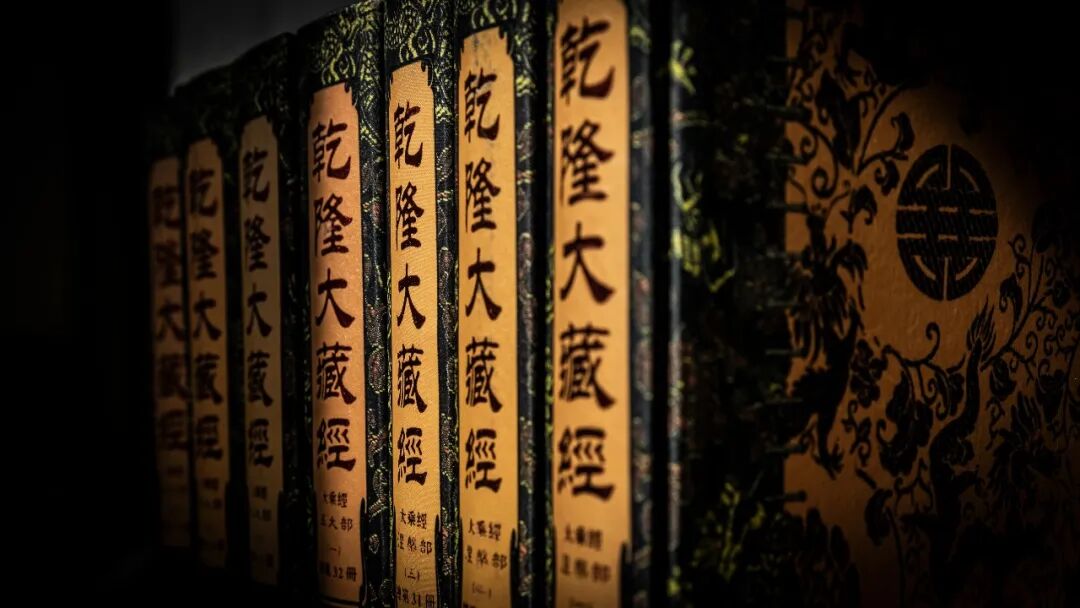 乾隆大藏經
乾隆大藏經
乾隆大藏經
乾隆大藏經
大乘經
五大部
(一)
第32冊
乾隆大藏經
大乘經
涅槃部
第31冊
乾隆大藏經
大乘經
涅槃部
乾隆大藏經
大乘經
涅槃部